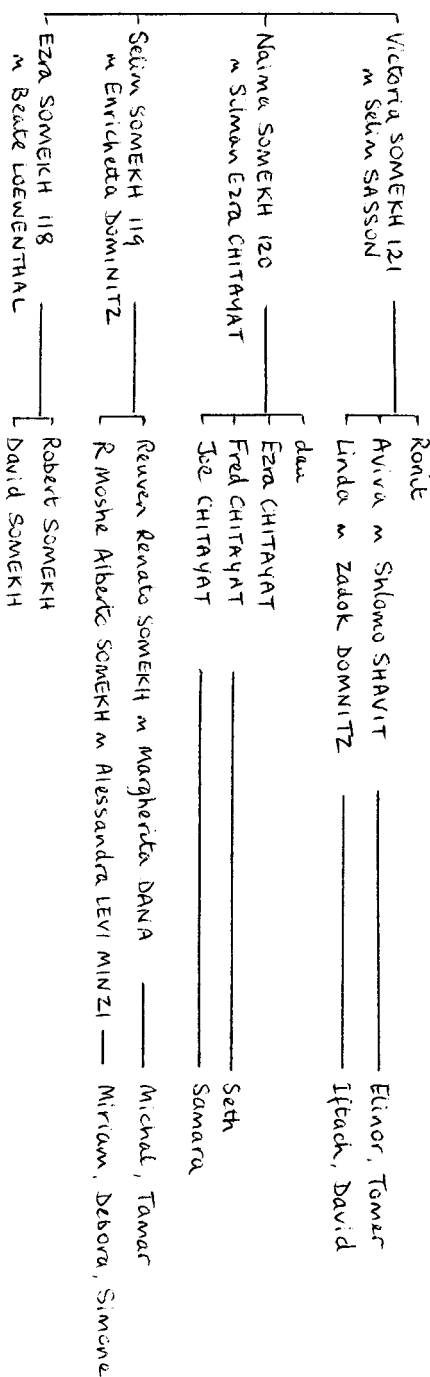 Victoria SOMEKH 121
m Selim SASSON
Ronit
Aviva m Shlomo SHAVIT
Elinor, Tomer
Linda m Zadok DOMNITZ
Iftach, David
Naima SOMEKH 120
m Silman Ezra CHITAYAT
dau
Ezra CHITAYAT
Fred CHITAYAT
Seth
Joe CHITAYAT
Samara
Selim SOMEKH 119
m Enrichetta DOMINITZ
Reuven Renato SOMEKH m Margherita DANA
Michal, Tamar
R Moshe Alberto SOMEKH m Alessandra LEVI MINZI
Miriam, Debora, Simone
Ezra SOMEKH 118
m Beate LOEWENTHAL
Robert SOMEKH
David SOMEKH